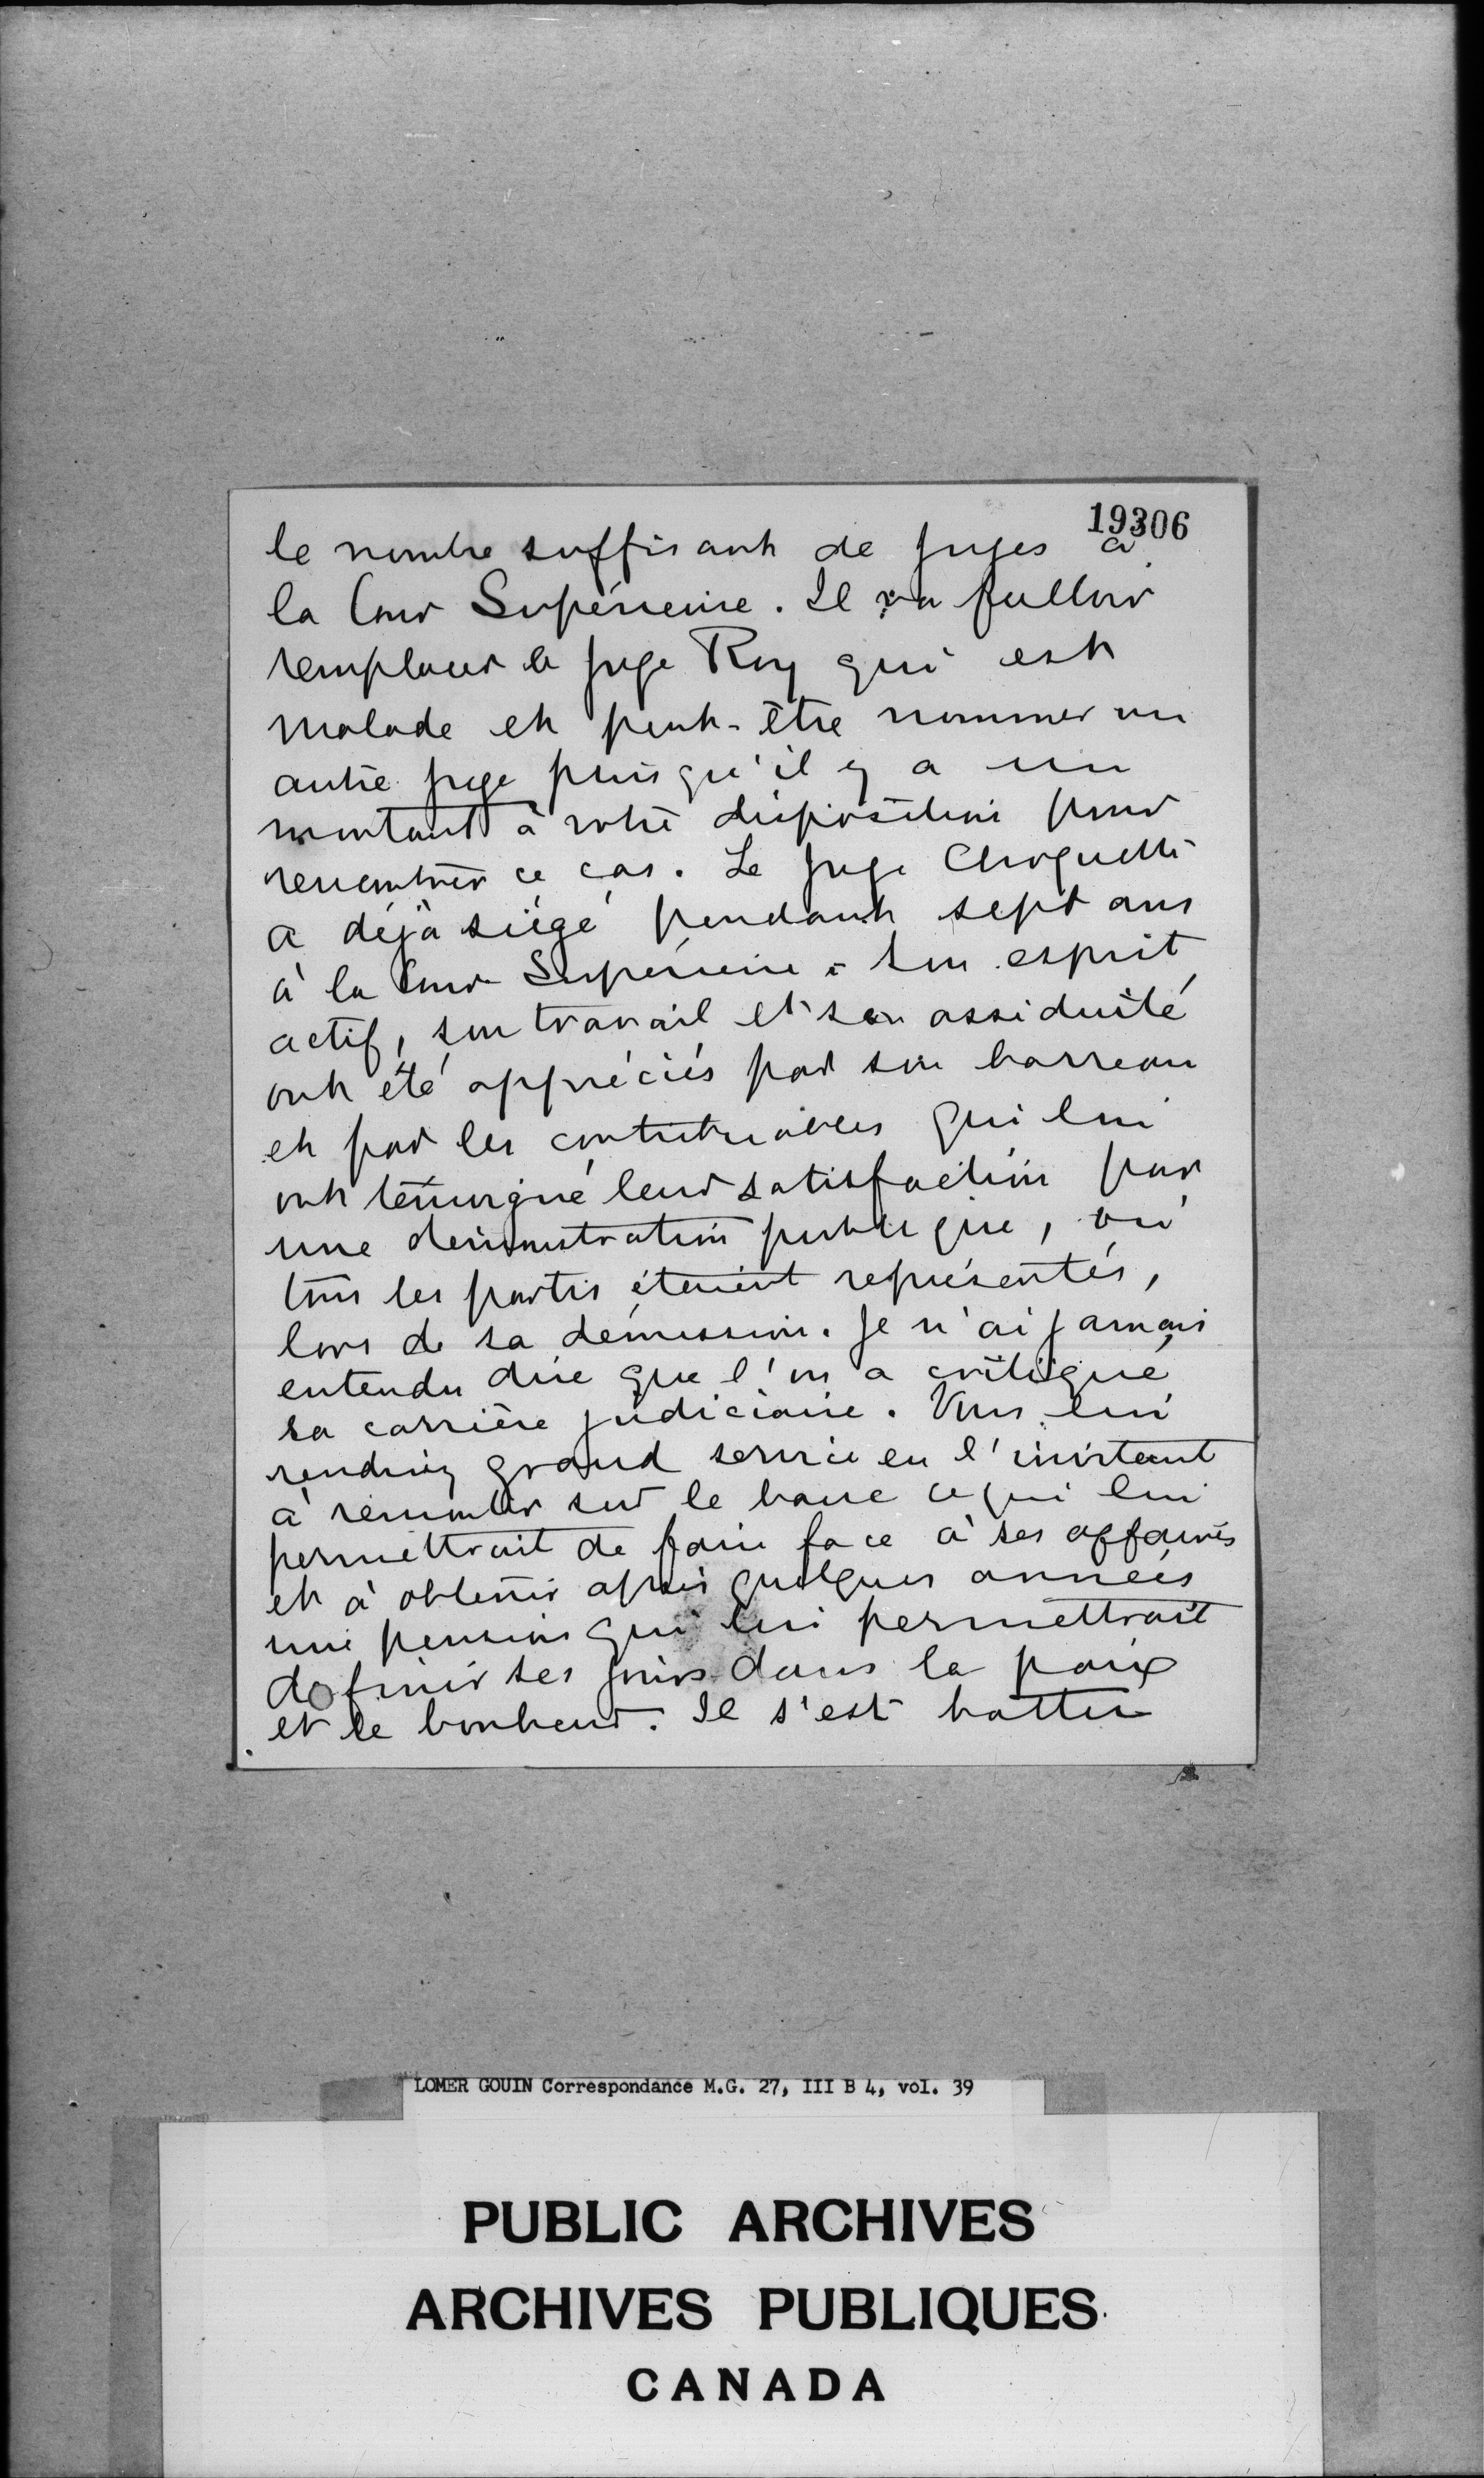 19306
le nombre suffisant de juges à
la Cour Supérieure. Il va falloir
remplacer le juge Roy qui est
malade et peut-être nommer un
autre juge puisqu'il y a un
montant à votre disposition pour
rencontrer ce cas. Le juge Choquette
a déjà siégé pendant sept ans
à la Cour Supérieure. Son esprit
actif, son travail et son assiduité
ont été appréciés par son barreau
et par les contribuables qui lui
ont témoigné leur satisfaction par
une démonstration publique, où
tous les partis étaient représentés,
lors de sa démission. Je n'ai jamais
entendu dire que l'on a critiqué
sa carrière judiciaire. Vous lui
rendriez grand service en l'invitant
à remonter sur le banc ce qui lui
permettrait de faire face à ses affaires
et à obtenir après quelques années
une pension qui lui permettrait
de finir ses jours dans la paix
et le bonheur. Il s'est battu
LOMER GOUIN Correspondance M.G. 27, III B 4, vol. 39
PUBLIC ARCHIVES
ARCHIVES PUBLIQUES
CANADA